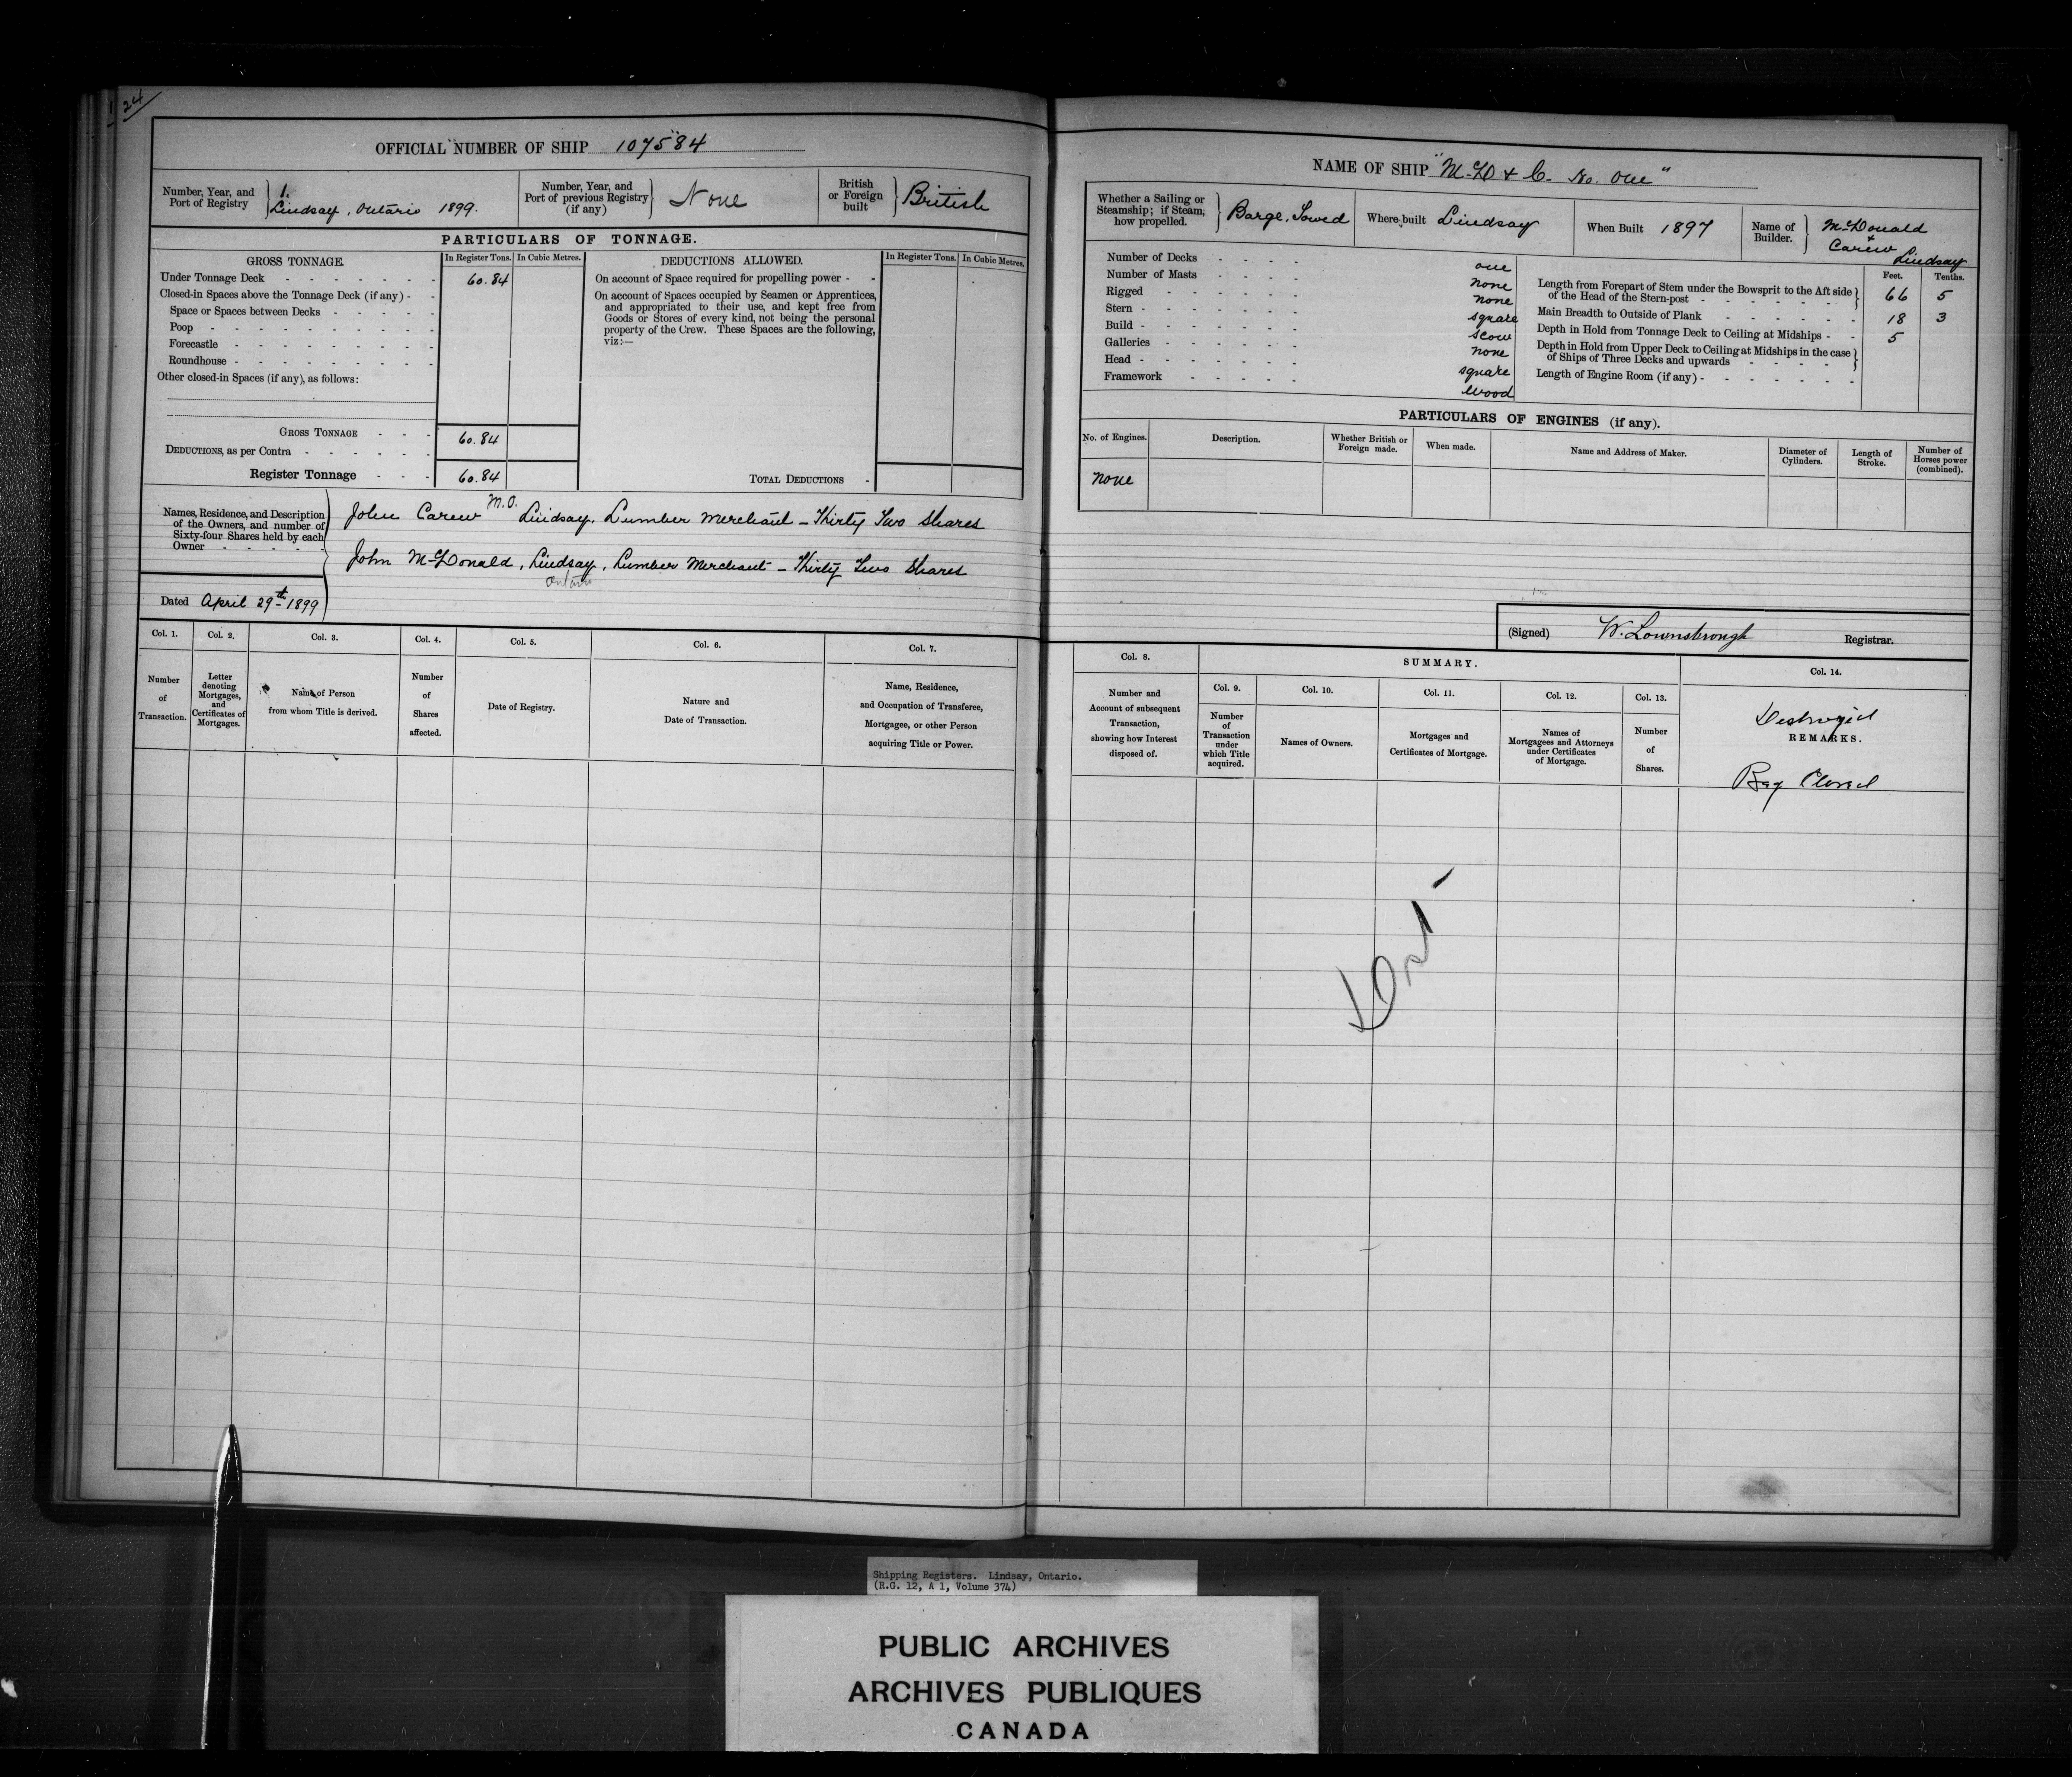 24
OFFICIAL NUMBER OF SHIP 107584
Number, Year, and
Port of Registry
1.
Lindsay, Ontario 1899.
Number, Year, and
Port of previous Registry
(if any)
None
British
or Foreign
built
British
PARTICULARS OF TONNAGE.
GROSS TONNAGE.
In Register Tons.
In Cubic Metres.
DEDUCTIONS ALLOWED.
In Register Tons.
In Cubic Metres.
Under Tonnage Deck - - - - - - 60.84
Closed-in Spaces above the Tonnage Deck (if any) - -
Space or Spaces between Decks - - - - -
Poop - - - - - - - - -
Forecastle - - - - - - -
Roundhouse - - - - - - - -
Other closed-in Spaces (if any), as follows:
On account of Space required for propelling power - -
On account of Spaces occupied by Seamen or Apprentices,
and appropriated to their use, and kept free from
Goods or Stores of every kind, not being the personal
property of the Crew. These Spaces are the following,
viz:—
GROSS TONNAGE - - - 60.84
DEDUCTIONS, as per Contra - - - - - -
Register Tonnage - - - 60.84
TOTAL DEDUCTIONS -
Names, Residence, and Description
of the Owners, and number of
Sixty-four Shares held by each
Owner - - - - -
John Carew M.O. Lindsay, Lumber Merchant - Thirty Two Shares
John McDonald, Lindsay, Lumber Merchant - Thirty Two Shares
Ontario
Dated April 29th 1899
Col. 1.
Col. 2.
Col. 3.
Col. 4.
Col. 5.
Col. 6.
Col. 7.
Number
of
Transaction.
Letter
denoting
Mortgages,
and
Certificates of
Mortgages.
Name of Person
from whom Title is derived.
Number
of
Shares
affected.
Date of Registry.
Nature and
Date of Transaction.
Name, Residence,
and Occupation of Transferee,
Mortgagee, or other Person
acquiring Title or Power.
NAME OF SHIP "McD & C. No. One"
Whether a Sailing or
Steamship; if Steam,
how propelled.
Barge, Towed
Where built Lindsay
When Built 1897
Name of
Builder.
McDonald
&
Carew
Lindsay
Number of Decks - - - - one
Number of Masts - - - - none
Rigged - - - - - - none
Stern - - - - - - square
Build - - - - - - scow
Galleries - - - - - - none
Head - - - - - - square
Framework - - - - - wood
Feet.
Tenths.
Length from Forepart of Stem under the Bowsprit to the Aft side
of the Head of the Stern-post - - - - - - - 66 5
Main Breadth to Outside of Plank - - - - - - 18 3
Depth in Hold from Tonnage Deck to Ceiling at Midships - - 5
Depth in Hold from Upper Deck to Ceiling at Midships in the case
of Ships of Three Decks and upwards - - - - -
Length of Engine Room (if any) - - - - - - -
PARTICULARS OF ENGINES (if any).
No. of Engines.
Description.
Whether British or
Foreign made.
When made.
Name and Address of Maker.
Diameter of
Cylinders.
Length of
Stroke.
Number of
Horses power
(combined).
none
(Signed) W. Lownsbrough Registrar.
Col. 8.
SUMMARY.
Col. 14.
Col. 9.
Col. 10.
Col. 11.
Col. 12.
Col. 13.
Number and
Account of subsequent
Transaction,
showing how Interest
disposed of.
Number
of
Transaction
under
which Title
acquired.
Names of Owners.
Mortgages and
Certificates of Mortgage.
Names of
Mortgagees and Attorneys
under Certificates
of Mortgage.
Number
of
Shares.
Destroyed
REMARKS.
Reg Closed
Shipping Registers. Lindsay, Ontario.
(R.G. 12, A 1, Volume 374)
PUBLIC ARCHIVES
ARCHIVES PUBLIQUES
CANADA